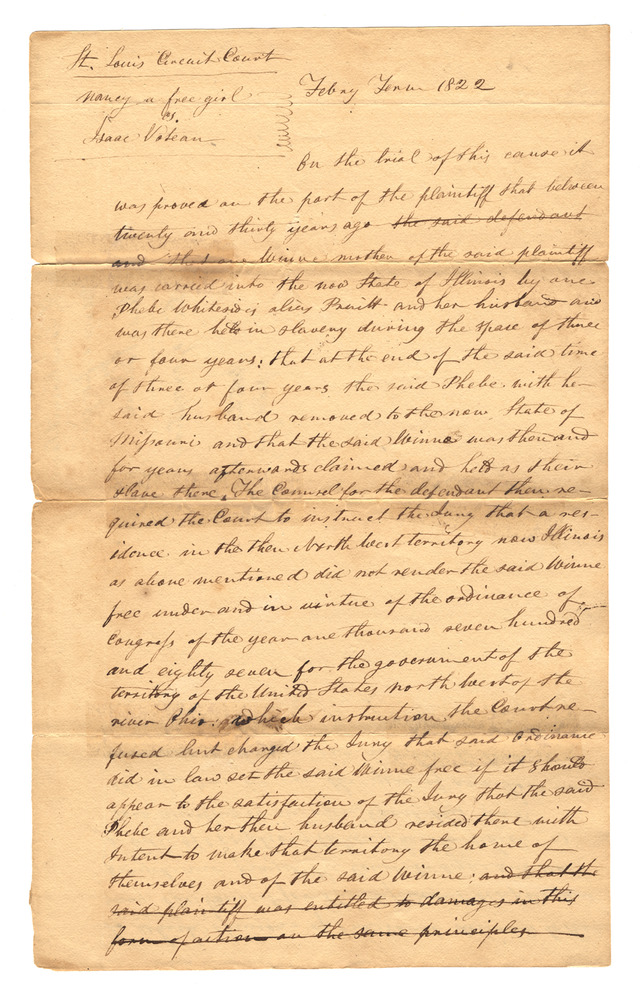 St. Louis Circuit Court
Nancy a free girl
vs.
Isaac Voteau
Febry Term 1822
On the trial of this cause it
was proved on the part of the plaintiff that between
twenty and thirty years ago the said defendant
and that one Winne mother of the said plaintiff
was carried into the now State of Illinois by one
Phebe Whitesides alias Pruitt and her husband and
was there held in slavery during the space of three
or four years; that at the end of the said time
of three or four years, the said Phebe with her
said husband removed to the now State of
Missouri and that the said Winne was then and
for years afterwards claimed and held as their
slave there. The Counsel for the defendant then re-
quired the Court to instruct the Jury that a res-
idence in the then North West territory now Illinois
as above mentioned did not render the said Winne
free under and in virtue of the ordinance of
Congress of the year one thousand seven hundred
and eighty seven for the government of the
territory of the United States north West of the
river Ohio; which instruction the Court re-
fused but charged the Jury that said Ordinance
did in law set the said Winne free if it should
appear to the satisfaction of the Jury that the said
Phebe and her then husband resided there with
Intent to make that territory the home of
themselves and of the said Winne; and that the
said plaintiff was entitled to damages in this
form of action on the same principles